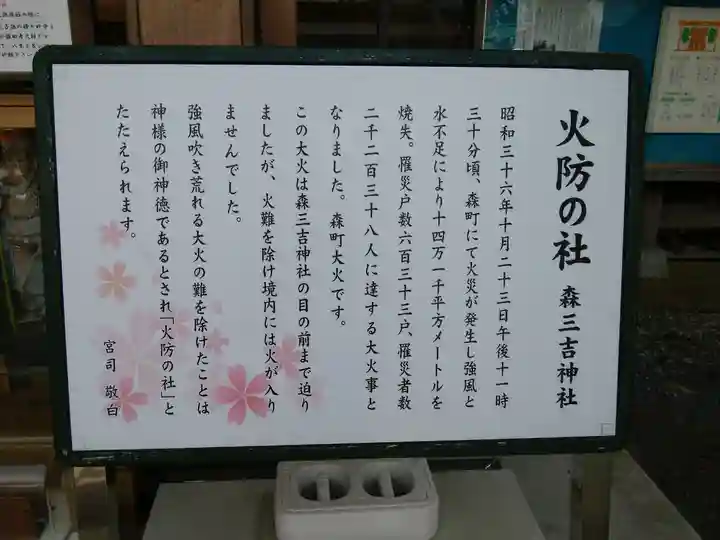 火防の社 森三吉神社
昭和三十六年十月二十三日午後十一時
三十分頃、森町にて火災が発生し強風と
水不足により十四万一千平方メートルを
焼失。罹災戸数六百三十三戸、罹災者数
二千二百三十八人に達する大火事と
なりました。森町大火です。
この大火は森三吉神社の目の前まで迫り
ましたが、火難を除け境内には火が入り
ませんでした。
強風吹き荒れる大火の難を除けたことは
神様の御神徳であるとされ「火防の社」と
たたえられます。
宮司 敬白